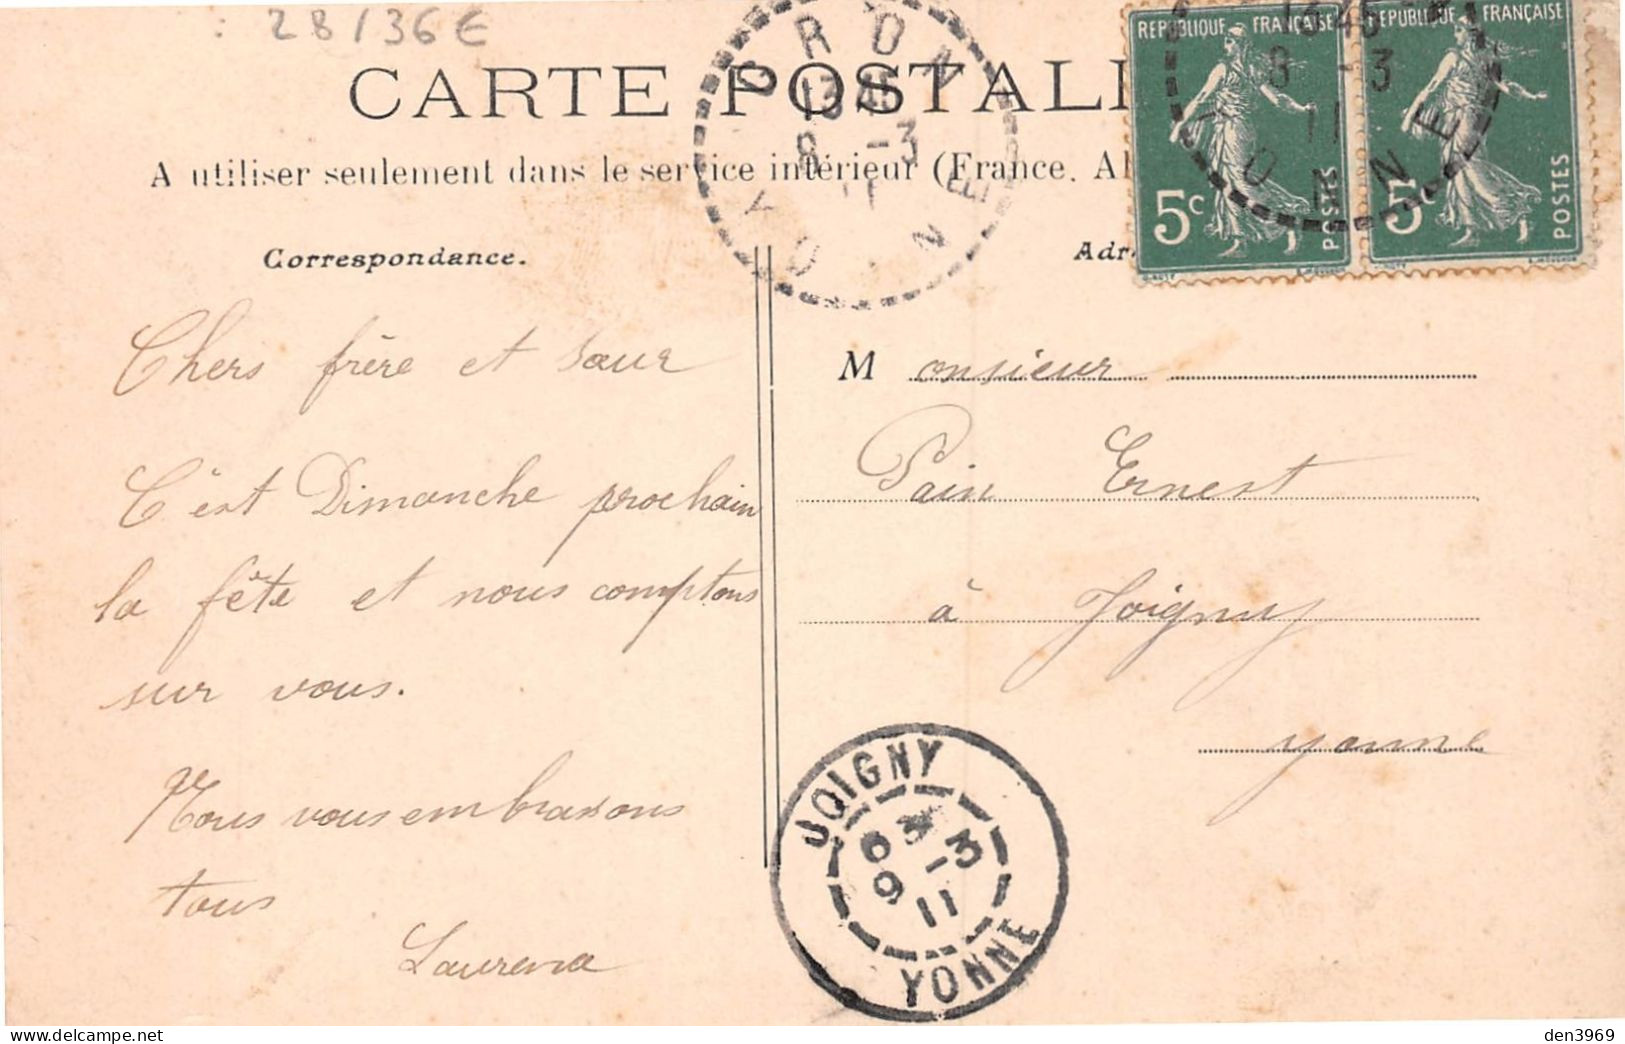 28/36€
CARTE POSTALE
A utiliser seulement dans le service intérieur (France, Al
Correspondance.
Adr
REPUBLIQUE FRANÇAISE
5c
POSTES
REPUBLIQUE FRANÇAISE
5c
POSTES
GRON
13 45
8 -3
11
YONNE
13 45
8 -3
11
YONNE
Chers frère et sœur
C'est Dimanche prochain
la fête et nous comptons
sur vous.
Nous vous embrassons
tous
Laurena
Monsieur
Pain Ernest
à Joigny
Yonne
JOIGNY
9 -3
11
YONNE
den3969